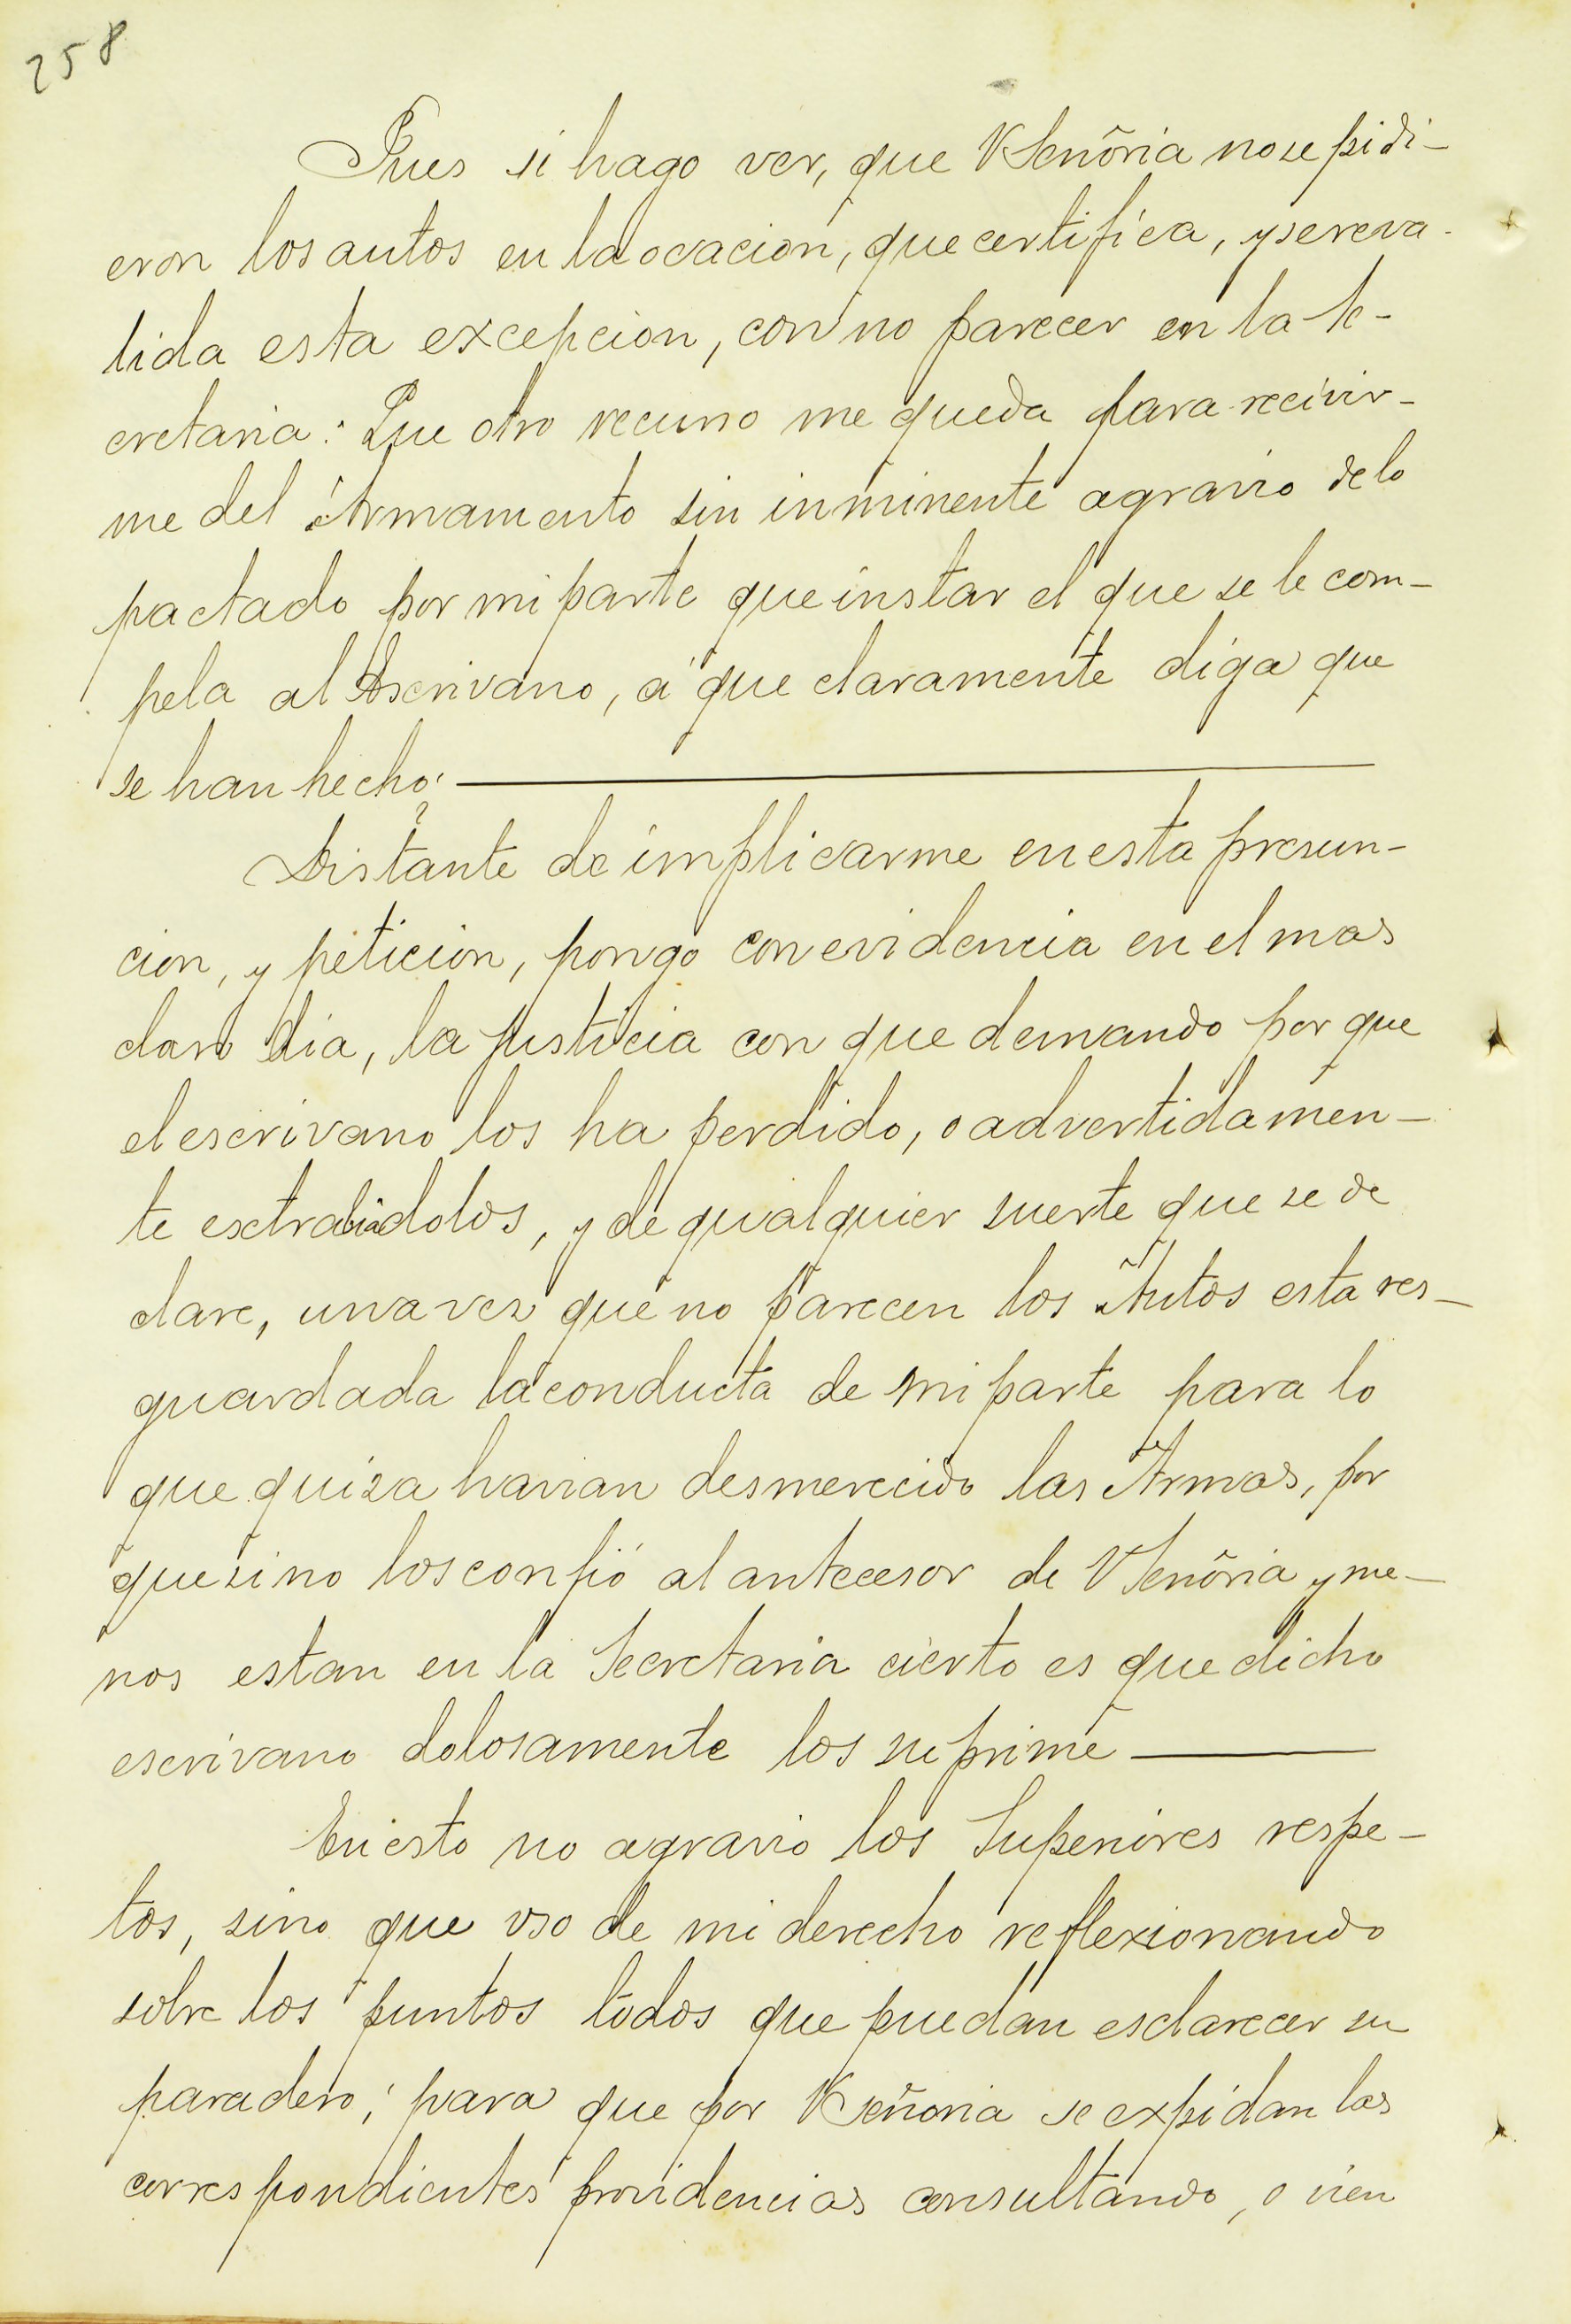 258
Pues si hago ver, que VSenõria no se pidi-
eron los autos en la ocacion, que certifica, y se reva-
lida esta excepcion, con no parecer en la Se-
cretaria: Que otro recurso me queda para recivir-
me del Armamento sin inminente agravio de lo
pactado por mi parte que instar el que se le com-
pela al Escrivano, á que claramente diga que
se han hecho?
Distante de implicarme en esta presun-
cion, y peticion, pongo con evidencia en el mas
claro dia, la justicia con que demando por que
el escrivano los ha perdido, o advertidamen-
te extraidolos, y de qualquier suerte que se de
clare, una vez que no parecen los Autos esta res-
guardada la conducta de mi parte para lo
que quiza havian desmerecido las Armas, por
que si no los confió al antecesor de VSenõria y me-
nos estan en la Secretaria cierto es que dicho
escrivano dolosamente los suprime
En esto no agravio los Superiores respe-
tos, sino que uso de mi derecho reflexionando
sobre los puntos todos que puedan esclarecer su
paradero; para que por VSeñoria se expidan las
correspondientes providencias consultando, o vien